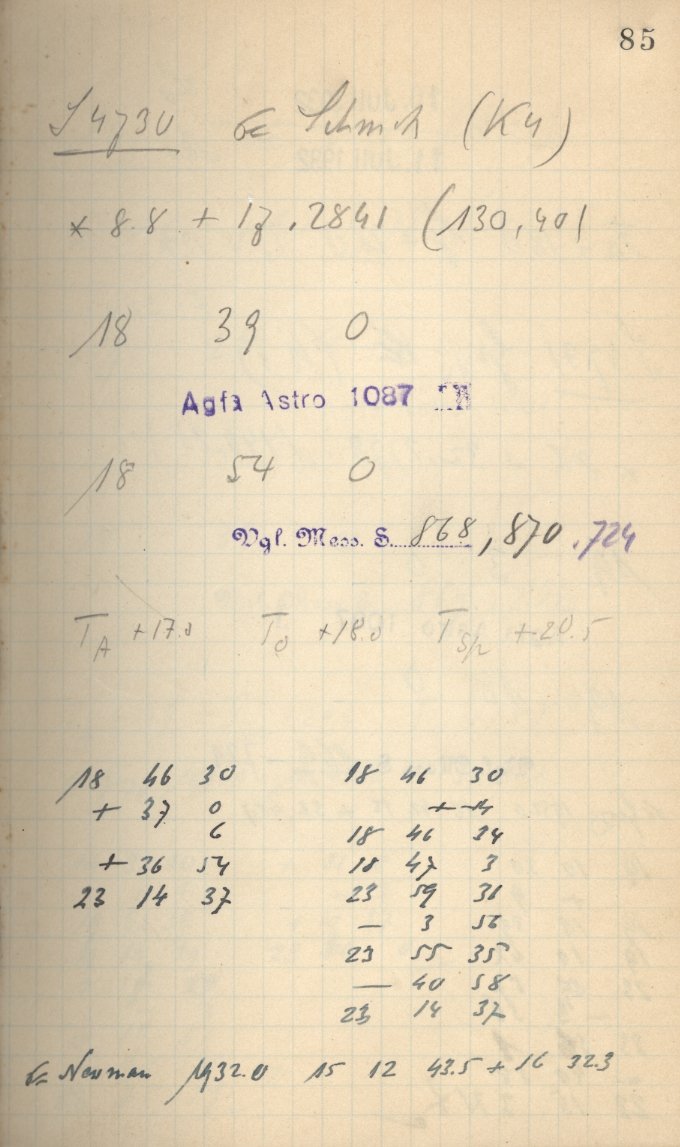 85
S 4730 Schmidt (K4)
* 8.8 + 17.2841 (130,40)
18 39 0
Agfa Astro 1087
18 54 0
Vgl. Mess. S. 868, 870.724
T_A +17.0 T_O +18.0 T_Sp +20.5
18 46 30
+ 37 0
6
+ 36 54
23 14 37
18 46 30
+ -4
18 46 34
18 47 3
23 59 31
— 3 56
23 55 35
— 40 58
23 14 37
1932.0 15 12 43.5 + 16 32.3